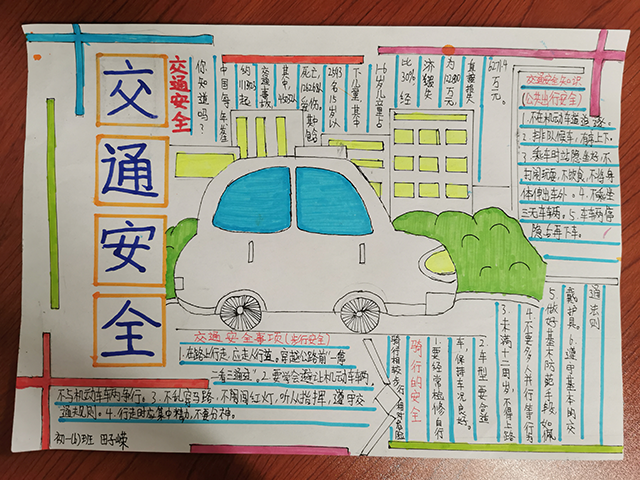 交
通
安
全
交通安全
你知道吗?
中国每年发生
交通事故
其中,
死亡
2593名15岁以
下儿童,其中
1-6岁儿童占
比30%,经
济损失
为12880万元。
直接损失
万元。
交通安全知识
(公共出行安全)
1.不在机动车道
2.排队候车,
3.乘车时站稳坐好,不
打闹玩耍,不饮食,不将身
体伸出车外。4.不乘坐
三无车辆。5.车辆停
稳后再下车。
交通安全事项(步行安全)
1.在路上行走,应走人行道,穿越公路前"一停
二看三通过"。2.要学会避让机动车车辆,
不与机动车车辆争行。3.不乱穿马路,不闯闯红灯,听人指挥,遵守交
通规则。4.行走时应集中精力,不要分神。
初一(6)班 田子嵘
骑行的安全
1.要经常检修自行
车,保持车况良好。
2.车型要合适
3.未满十二周岁,不得上路
4.不要多人并行等行为
5.做好基本防范手段如佩
戴护具。6.遵守基本的交
通法则